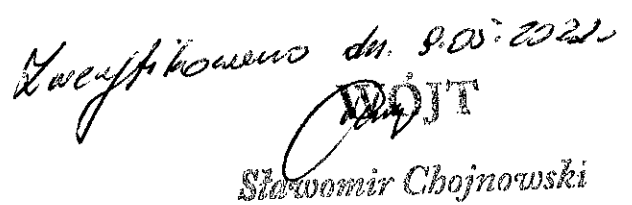 Zweryfikowano dn. 9.05.2022
WÓJT
Sławomir Chojnowski